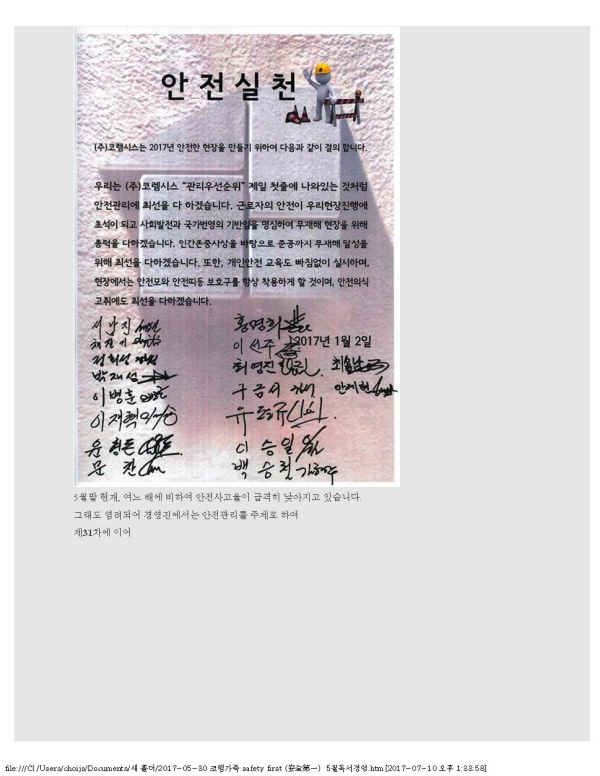 안전실천
(주)코렘시스는 2017년 안전한 현장을 만들기 위하여 다음과 같이 결의 합니다.
우리는 (주)코렘시스 "관리우선순위" 제일 첫줄에 나와있는 것처럼
안전관리에 최선을 다 하겠습니다. 근로자의 안전이 우리현장진행에
초석이 되고 사회발전과 국가번영의 기반임을 명심하여 무재해 현장을 위해
총력을 다하겠습니다. 인간존중사상을 바탕으로 준공까지 무재해 달성을
위해 최선을 다하겠습니다. 또한, 개인안전 교육도 빠짐없이 실시하며,
현장에서는 안전모와 안전띠등 보호구를 항상 착용하게 할 것이며, 안전의식
고취에도 최선을 다하겠습니다.
서남진 홍명희
이선주 2017년 1월 2일
정희성 최영진
박재성 구금서 안제현
이병훈
이재혁
윤형돈 이승일
문찬 백승철
5월말 현재, 여느 해에 비하여 안전사고율이 급격히 낮아지고 있습니다.
그래도 염려되어 경영진에서는 안전관리를 주제로 하여
제31차에 이어
file:///C|/Users/choijs/Documents/새 폴더/2017-05-30 코렘가족 safety first (安全第一) 5월독서경영.htm[2017-07-10 오후 1:33:58]